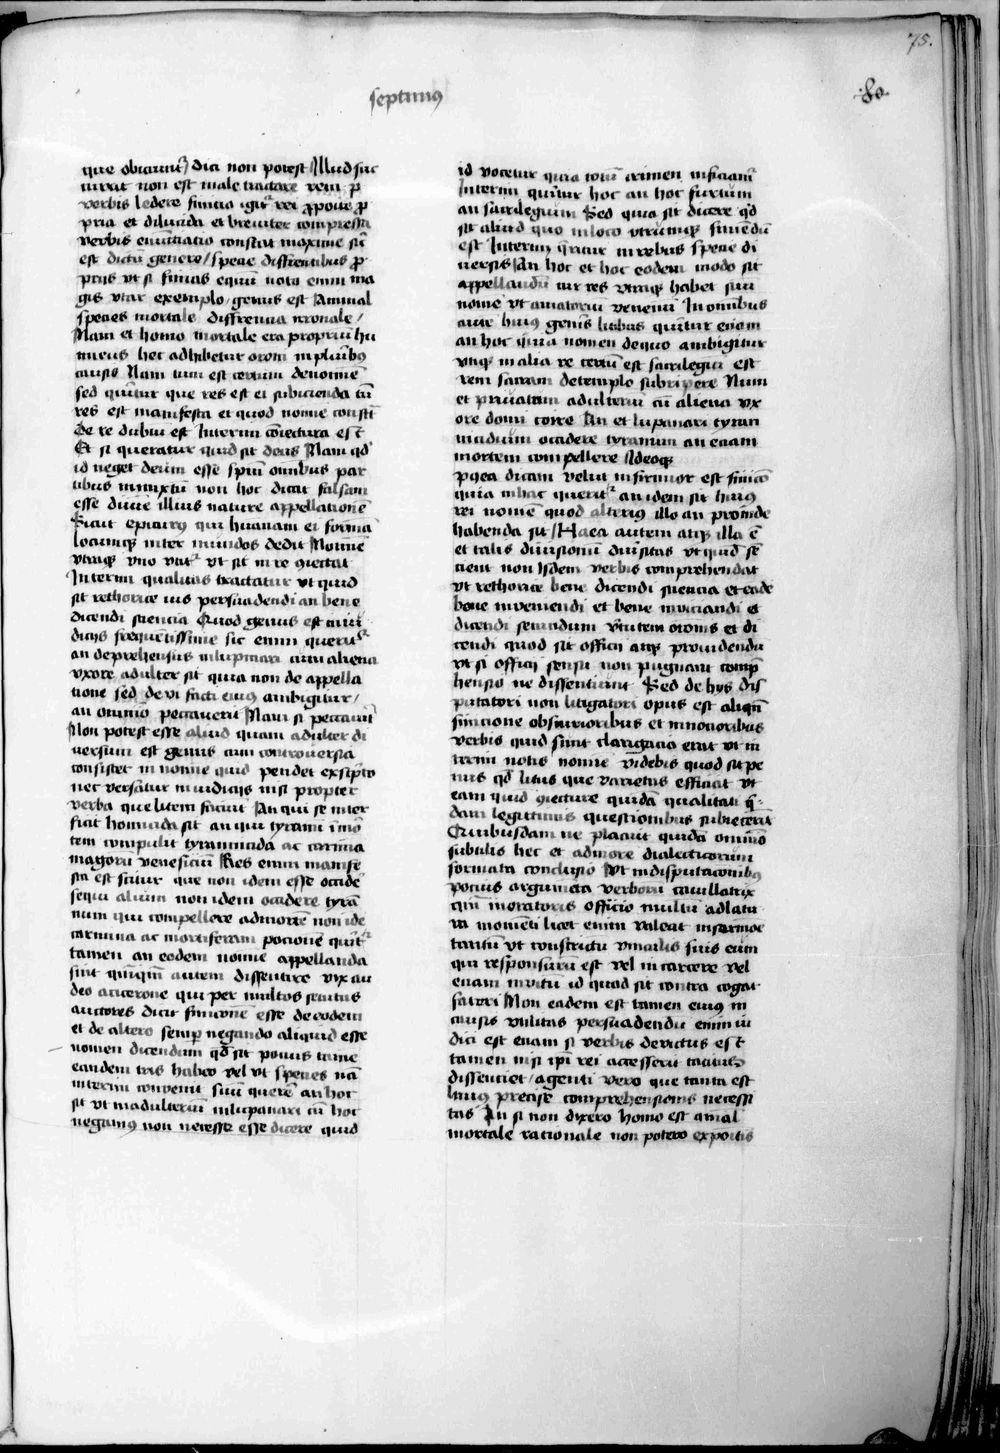 75.
septimus
80
que obiciuntur dici non potest Illud sit
iuxit non est male tractare rem p
verbis ledere finicio igitur rei proposite pro
pria et dilucida et breuiter compressa
verbis enunciatio constat maxime sic
est dictum genere / specie differentibus pro
priis vt si finias equum noto enim ma
gis vtar exemplo / genus est Animal
species mortale differencia irronale /
Nam et homo mortale erat proprium hi
nniens hec adhibetur oroni in pluribus
causis Nam tum est certum de nomine
sed queritur que res est ei subicienda tum
res est manifesta et quod nomine constet
de re dubium est Interim coniectura est
Et si queratur quid sit deus Nam qd
id neget deum esse spiritum omnibus par
tibus inmixtum non hoc dicat falsam
esse diuine illius nature appellationem
Sicut epicurus qui humanam ei formam
locumque inter mundos dedit Nomine
vterque vno vtitur vt sit in re coniectat
Interim qualitas tractatur vt quid
sit rethorice uis persuadendi an bene
dicendi sciencia Quod genus est in iu
diciis frequentissime sic enim queritur
an deprehensus in lupanari cum aliena
vxore adulter sit quia non de appella
tione sed de vi facti eius ambigitur /
an omnino peccauerit Nam si peccauit
Non potest esse aliud quam adulter di
uersum est genus cum controuersia
consistet in nomine quid pendet ex scripto
nec versatur in iudiciis nisi propter
verba que litem faciunt An qui se inter
ficit homicida sit an qui tyranni in mor
tem compulit tyrannicida ac carmina
magorum veneficium Res enim manife
sta est scitur que non idem esse occide
sequi alium non idem occidere tyra
num qui compellere ad mortem non ide
carmina ac mortiferam pocionem quitur
tamen an eodem nomine appellanda
sint quamquam autem dissentire vix au
deo a cicerone qui per multos secutus
auctores dicit finicionem esse de eodem
et de altero semper negando aliquid esse
nomen dicendum qd sit pocius tamen
eandem tris habeo vel vt species nam
interim conuenit solum querere an hoc
sit vt in adulterium in lupanari cum hoc
negamus non necesse esse dicere quid
id vocetur quia totum crimen inficiamur
Interim queritur hoc an hoc furtum
an sacrilegium Sed quia sit dicere qd
sit aliud quo in loco vtrumque finiendum
est Interim queritur in rebus specie di
uersis An hoc et hoc eodem modo sit
appellandum cum res vtraque habet suum
nomen vt amatorium venenum In omnibus
autem huius generis litibus queritur enim
an hoc quia nomen de quo ambigitur
vtique in alia re certum est sacrilegium est
rem sacram de templo subripere Num
et priuatam adulterium cum aliena vx
ore domi coire An et lupanari tyran
nicidium occidere tyrannum an eciam
mortem compellere Ideoque
postea dicam velut infirmior est finicio
quia in hac queritur an idem sit huius
rei nomen quod alterius illo an proinde
habenda sit / Haec autem atque illa est
et talis diuisionum diuersitas vt quid sen
tient non Isdem verbis comprehendat
vt rethorice bene dicendi sciencia et eade
bene inueniendi et bene inuiciandi et
dicendi secundum virtutem oronis et di
cendi quod sit officii atque prouidendum
vt si officij sensu non pugnant comp
hensio ne dissentiunt Sed de hys dis
putatori non litigatori opus est aliquando
finicione obscurioribus et innotioribus
verbis quid sunt clarigacio erat vt in
termini notis nomine videbis quod sit pe
nus qd litus que varietas efficiat vt
eam quid coniecture quidam qualitati q-
dam legitimis questionibus subiecerit
Quibusdam ne placuit quidam omnino
subtilis hec et ad more dialecticorum
formata conclusio Vt in disputationibus
pocius argumenta verborum cauillatrix
quam in oratoris officio multum adlatu
ra momenti licet enim valeat in sermone
tantum vt constrictum vinculis suis eum
qui responsurum est vel in carcere vel
eciam inuitum id quod sit contra cogat
fateri Non eadem est tamen eius in
causis vtilitas persuadendum enim iu
dici est eciam si verbis deuictus est
tamen nisi ipsi rei accesserit tacitus
dissenciet / agenti vero que tanta est
huius precise comprehensionis necessi
tas An si non dixero homo est amal
mortale racionale non potero expositis